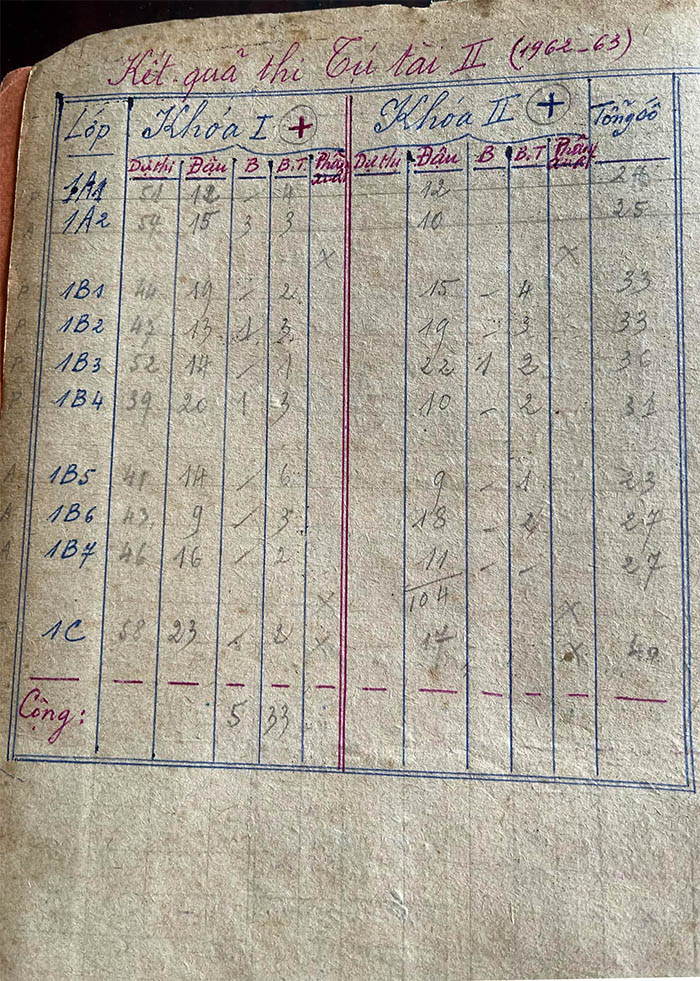 Kết quả thi Tú tài II (1962-63)
Lớp Khóa I + Khóa II + Tổng số
Dự thi Đậu B B.T Phần Dự thi Đậu B B.T Phần
P 1A1 51 12 - 4 12 24
A 1A2 54 15 3 3 10 25
x x
P 1B1 44 19 - 2 15 - 4 33
P 1B2 43 13 1 3 19 - 3 33
P 1B3 52 14 - 1 22 1 2 36
P 1B4 39 20 1 3 10 - 2 31
A 1B5 48 14 - 6 9 - 1 23
A 1B6 43 9 - 5 18 - 2 27
A 1B7 46 16 - 2 11 - - 27
x 104 x
1C 58 23 - 2 x 17 x 40
Cộng: 5 33